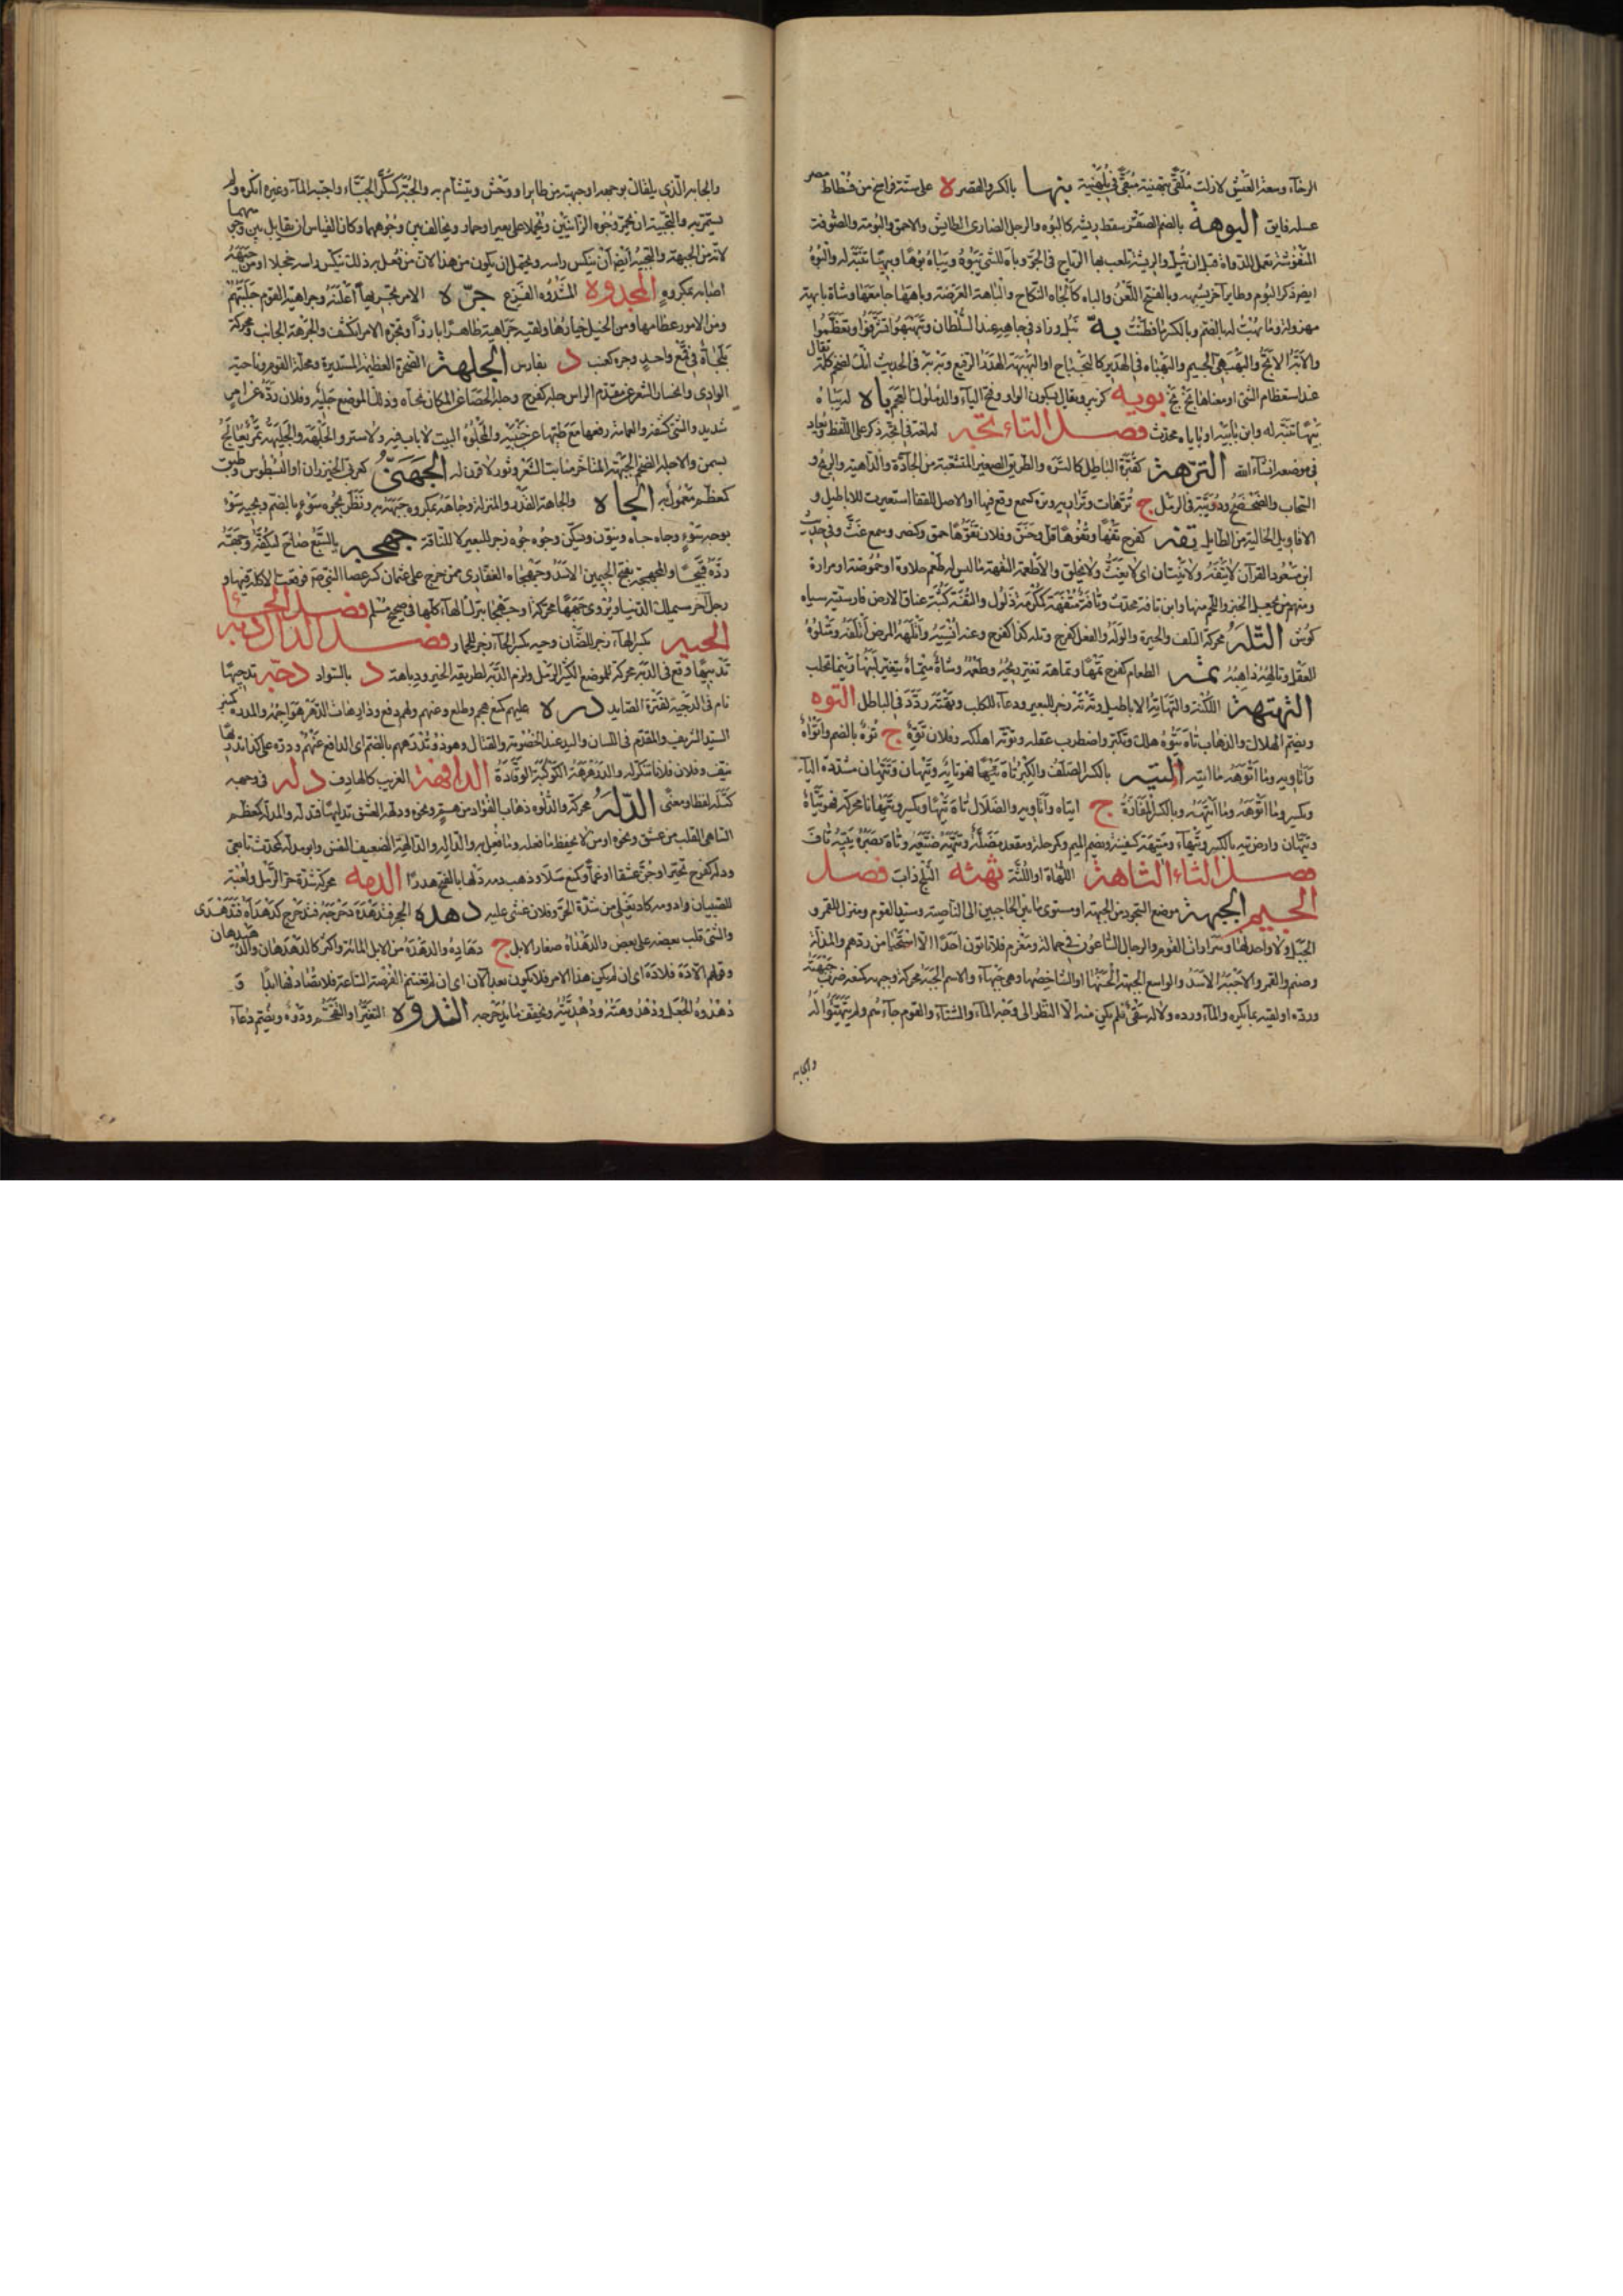 الرخاء وسعة العيش لازلت ملقّى بتهنية مبقّى فى بلهنية بنها بالكسر والقصر ة على ستة فراسخ من فسطاط مصر
عسله فايق البوهة بالضم الصقر سقط ريشه كالبوه والرجل الضاوى الطائش والاحمق والبومة والصوفة
المنفوشة تعمل للدواة قبل ان تبل والريشة تلعب بها الرياح فى الجو وباه للشى يبوه ويباه بوها وبيها تنبه له والبوه
ذكر البوم وطاير آخر يشبهه وبالفتح اللعن والباه كالجاه النكاح والباهة العرصة وباهها جامعها وشاة بايهة
مهزولة وما بهت له بالضم وبالكسر ما فطنت به نبل وزاد فى جاهه عند السلطان وتبهبهوا تشرفوا وتعظموا
والابه الابح والبهبهى الجسيم والبهباه فى الهدير كالبخباخ او البهبهة الهدر الرفيع وبه به فى الحديث انك لضخم كلمة تقال
عند استعظام الشى او معناها بخ بخ بويه كزبير ويقال بسكون الواو وفتح الياء والد ملوك العجم باه له يباه
بيها تنبه له وابن بابيه او باباه محدث فصل التاء تجه لغة فى اتجه ذكر على اللفظ ويعاد
فى موضعه ان شاء الله الترهة كقبرة الباطل كالتره والطريق الصغير المتشعبة من الجادة والداهية والريح و
السحاب والصحصح ودويبة فى الرمل ج ترهات وتراريه وتره كسمع وقع فيها او الاصل للقفار استعيرت للاباطيل و
الاقاويل الخالية من الطايل تفه كفرح تفها وتفوها قل وخس وفلان تفوها حمق وكنصر وسمع غث وفى حديث
ابن مسعود القرآن لا يتفه ولا يتشان اى لا يغث ولا يخلق والاطعمة التفهة ما ليس له طعم حلاوة او حموضة او مرارة
ومنهم من يجعل الخبز واللحم منها وابن تافه محدث وناقة متفهة كمكرمة ذلول والتفة كثبة عناق الارض فارسيته سياه
كوش التله محركة التلف والحيرة والوله والفعل كفرح وتله كذا كفرح وعنه انسيه واتلهه المرض اتلفه ومتلوه
العقل وتالهه ذاهبه تمه الطعام كفرح تمها وتماهة تغير ريحه وطعمه وشاة متماه يتغير لبنها ريثما تحلب
التهتهة اللكنة والتهاته الاباطيل وته ته زجر للبعير ودعاء للكلب وتهته ردد فى الباطل التوه
ويضم الهلاك والذهاب تاه يتوه هلك وتكبر واضطرب عقله وتوه اهلكه وفلاة توه ج توه بالضم واتواه
واتاويه وما اتوهه ما اتيه التيه بالكسر الصلف والكبر تاه تيها فهو تايه وتياه وتيهان وتيهان مشددة الياء
وتكسر وما اتوهه وما اتيهه وبالكسر المفازة ج اتياه واتاويه والضلال تاه تيها وتكسر وتيهانا محركة فهو تياه
وتيهان وارض تيه بالكسر وتيهاء ومتيهة كسفينة وتضم الميم وكرحلة ومقعد مضلة وتيهه ضيعه وتاه بصره يتيه تاف
فصل الثاء الثاهة اللهاة او اللثة ثهثه الثلج ذاب فصل
الجيم الجبهة موضع السجود من الوجه او مستوى ما بين الحاجبين الى الناصية وسيد القوم ومنزل للقمر و
الخيل ولا واحد لها وسروات القوم والرجال الساعون فى حمالة ومغرم فلا ياتون احدا الا استحيا من ردهم والمذلة
وصنم والقمر والاجبه الاسد والواسع الجبهة الحسنها او الشاخصها وهى جبهاء والاسم الجبه محركة وجبهه كمنعه ضرب جبهته
ورده او لقيه بما يكره والماء ورده ولا له سقى فلم يكن منه الا النظر الى وجه الماء والشتاء والقوم جاءهم ولم يتهيئوا له
والجابه
والجابه الذى يلقاك بوجهه او جبهته من طاير او وحش ويتشام به والجبه كسكر الجبان واجتبه الماء وغيره انكره ولم
يستمرئه والتجبيه ان يحمر وجوه الزانيين ويحملا على بعير او حمار ويخالف بين وجوههما وكان القياس ان يقابل بين وجههما
لانه من الجبهة والتجبيه ايضا ان ينكس راسه ويحتمل ان يكون من هذا لان من فعل به ذلك ينكس راسه خجلا او من جبهه
اصابه بمكروه المجدوه المشدوه الفزع جره الامر تجريها اعلنه وجراهية القوم جلبتهم
ومن الامور عظامها ومن الخيل خيارها ولقيه جراهية ظاهرا بارزا وتجره الامر انكشف والجرهة الجانب وبحركة
بلحات فى قمع واحد وجره كعنب د بفارس الجلهة الصخرة العظيمة المستديرة ومحلة القوم وناحية
الوادى وانحسار الشعر عن مقدم الراس جله كفرح وجله الحصا عن المكان نحاه وذلك الموضع جليهة وفلان رده عن امر
شديد والشى كشفه والعمامة رفعها مع طيها عن جبينه والمجلوه البيت لا باب فيه ولا ستر والجلهة والجليهة تمر يعالج
بسمن والاجله الضخم الجبهة المتاخر منابت الشعر وثور لا قرن له الجهنى كعربى الخيزران او العسطوس وطبق
كمعظم معمول به الجاه والجاهة القدر والمنزلة وجاهه بمكروه جبهه به ونظر بجوه سوء بالضم وبجيه سوء
بوجه سوء وجاه جاه وينون ويسكن وجوه جوه زجر للبعير لا للناقة جهجه بالسبع صاح ليكفه وجهه
رده قبيحا والجهجهة بفتح الجيمين الاسد وجهجاه الغفارى ممن خرج على عثمان كسر عصا النبى فوقعت الاكلة فيها و
رجل آخر سيملك الدنيا ويروى جهجها محركة او جهجا بترك الهاء كلها فى صحيح مسلم فصل الحاء
الحيه بكسر الهاء زجر للضان وحيه بكسر الحاء زجر للحمار فصل الدال دبه
تدبيها وقع فى الدبه محركة للموضع الكثير الرمل ولزم الدبه لطريقة الخير ودباهة د بالسواد دجه تدجيها
نام فى الدجيه لقترة الصايد دره عليهم كمنع هجم وطلع وعنهم ولهم دفع ودارهات الدهر هواجمه والمدره كمنبر
السيد الشريف والمقدم فى اللسان واليد عند الخصومة والقتال وهو ذو تدرههم بالضم اى الدافع عنهم ودره على كذا تدريها
نيف وفلان فلانا تنكر له والدرهرهة الكوكبة الوقادة الدافهة الغريب كالهادف دله فى وجهه
كتله لفظا ومعنى الدله محركة والدلوه ذهاب الفؤاد من هم ونحوه ودلهه العشق تدليها فتدله والمدله كمعظم
الساهى القلب من عشق ونحوه او من لا يحفظ ما فعله وما فعل به والداله والدالهة الضعيف النفس وابو مدله كمحدث تابعى
ودله كفرح تحير او جن عشقا او غما وكمنع سلا وذهب دمه دلها بالفتح هدرا الدمه محركة شدة حر الرمل ولعبة
للصبيان وادومه كاد يغلى من شدة الحر وفلان غشى عليه دهده الحجر فتدهده دحرجه فتدحرج كدهداه فتدهدى
والشى قلب بعضه على بعض والدهداه صغار الابل ج دهاده والدهدهة من الابل المائة واكثر كالدهدهان والدهيدهان
وقولهم الا ده فلا ده اى ان لم يكن هذا الامر فلا يكون بعد الآن اى ان لم تغتنم الفرصة الساعة فلا تصادفها ابدا
دهدوه الجعل ودهدوهته ودهديته وتخفف ما يدحرجه التدوه التغير او التقحم ودوه وتضم دعاء